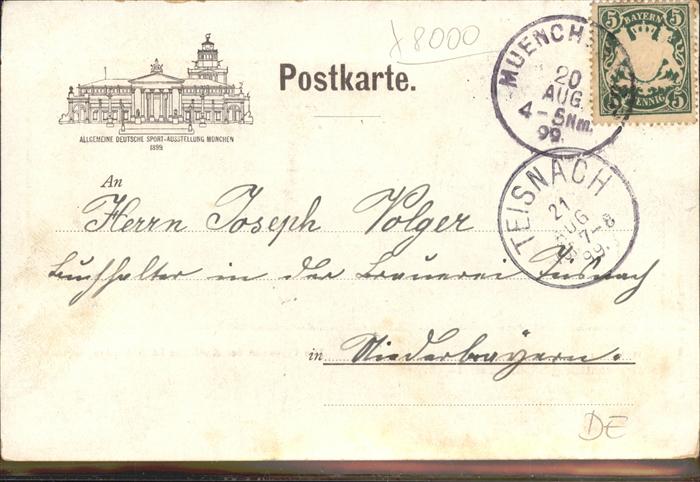 x 8000
Postkarte.
ALLGEMEINE DEUTSCHE SPORT-AUSSTELLUNG MÜNCHEN
1899
5 BAYERN 5
5 PFENNIG 5
MUENCHEN
20
AUG.
4-5 Nm.
99.
TEISNACH
21
AUG
7-8
99.
An
Herrn Joseph Volger
Buchhalter in der Brauerei Teisnach
in Niederbayern.
DE